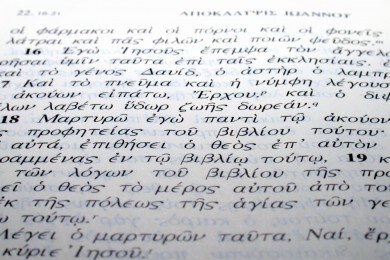 22. 16-21 ΑΠΟΚΑΛΥΨΙΣ ΙΩΑΝΝΟΥ
οἱ φάρμακοι καὶ οἱ πόρνοι καὶ οἱ φονεῖς
λάτραι καὶ πᾶς φιλῶν καὶ ποιῶν ψεῦδος.
16 Ἐγὼ Ἰησοῦς ἔπεμψα τὸν ἄγγελο
ρῆσαι ὑμῖν ταῦτα ἐπὶ ταῖς ἐκκλησίαις. ἐ
καὶ τὸ γένος Δαυίδ, ὁ ἀστὴρ ὁ λαμπρ
7 Καὶ τὸ πνεῦμα καὶ ἡ νύμφη λέγουσ
ἀκούων εἰπάτω, Ἔρχου. καὶ ὁ διψ
λων λαβέτω ὕδωρ ζωῆς δωρεάν.
18 Μαρτυρῶ ἐγὼ παντὶ τῷ ἀκούον
ς προφητείας τοῦ βιβλίου τούτου·
αὐτά, ἐπιθήσει ὁ θεὸς ἐπ' αὐτὸν
ραμμένας ἐν τῷ βιβλίῳ τούτῳ, 19 κ
τῶν λόγων τοῦ βιβλίου τῆς προ
εῖ ὁ θεὸς τὸ μέρος αὐτοῦ ἀπὸ το
ἐκ τῆς πόλεως τῆς ἁγίας τῶν γε
ῳ τούτῳ.
Λέγει ὁ μαρτυρῶν ταῦτα, Ναί, ἔρ
κύριε Ἰησοῦ.